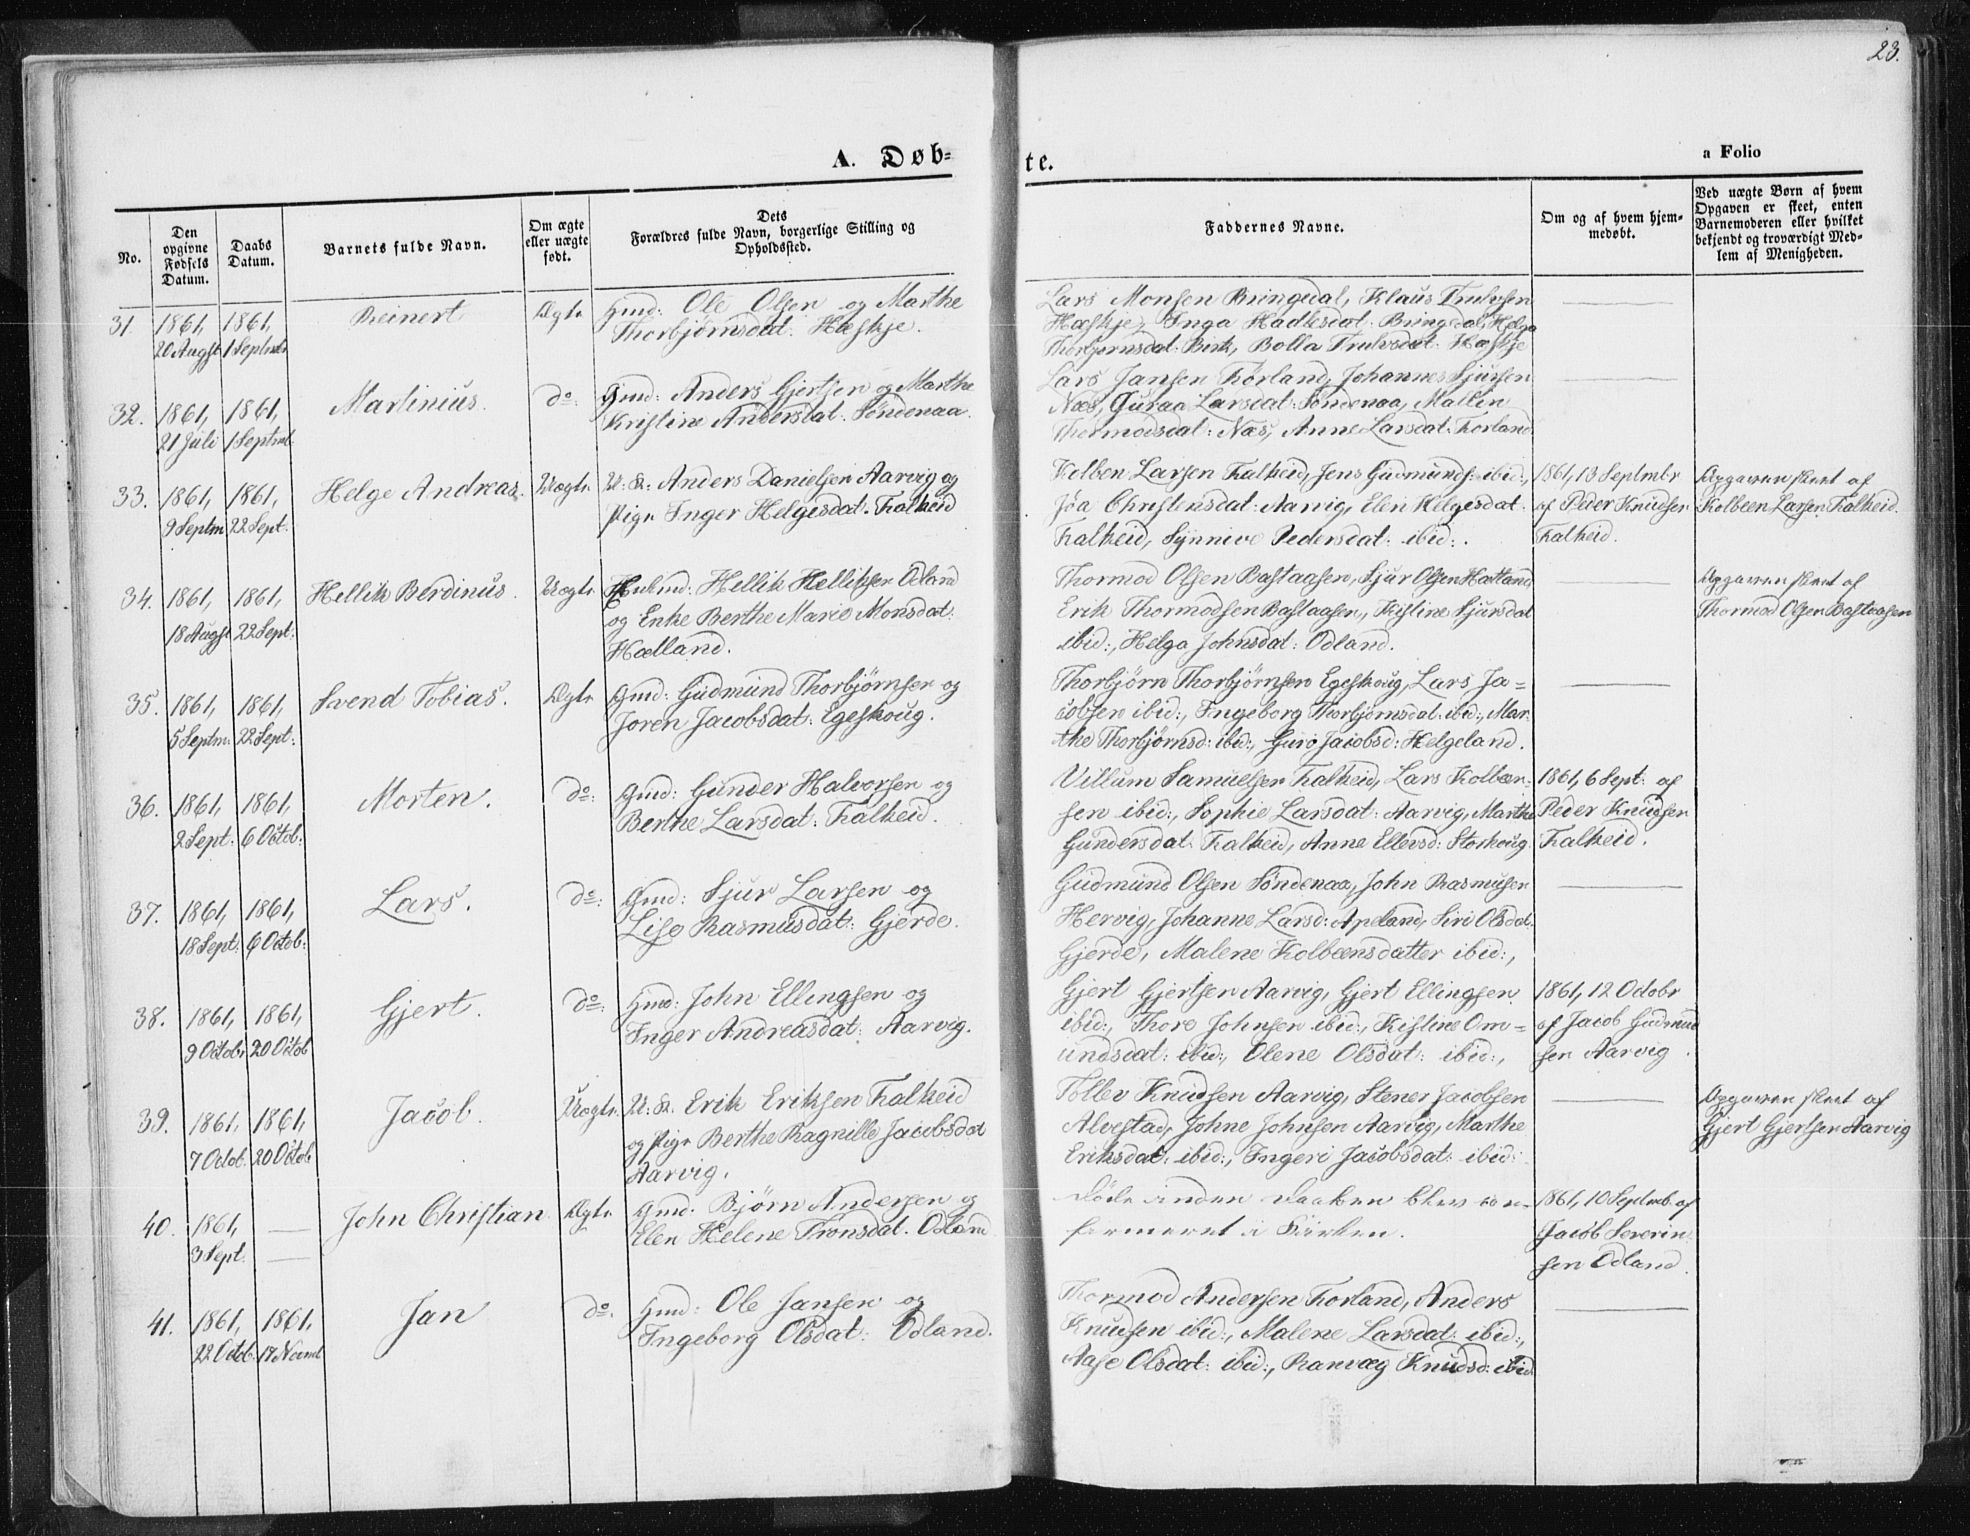 23.
A. Døb-
te.
a Folio
No.
Den opgivne Fødsels Datum.
Daabs Datum.
Barnets fulde Navn.
Om ægte eller uægte født.
Dets Forældres fulde Navn, borgerlige Stilling og Opholdssted.
Faddernes Navne.
Om og af hvem hjem-
medøbt.
Ved uægte Børn af hvem
Opgaven er skeet, enten
Barnemoderen eller hvilket
bekjendt og troværdigt Med-
lem af Menigheden.
31. 1861, 20 Augst 1861, 1 Septmbr
Reinert
Ægte
Gmd: Ole Olsen og Marthe
Thorbjørnsdat: Hæskje.
Lars Monsen Bringedal, Klaus Trulsen
Hæskje, Inga Hadlesdat: Bringedal, Helga
Thorbjørnsdat: Birk, Bolla Trulsdat: Hæskje
32. 1861, 21 Juli 1861, 1 Septmb.
Martinius.
do:
Gmd: Anders Gjertsen og Marthe
Kristine Andersdat: Søndenaa.
Lars Jansen Førland, Johannes Sjursen
Næs, Guraa Larsdat: Søndenaa, Mallin
Thormodsdat: Næs, Anne Larsdat: Førland
33. 1861, 9 Septm 1861, 22 Sept.
Helge Andreas.
Uægte
U: K: Anders Danielsen Aarvig og
Pige Inger Helgesdat: Falkeid
Kolben Larsen Falkeid, Jens Gudmunds: ibid:,
Jøa Christensdat: Aarvig, Elen Helgesdat:
Falkeid, Synnive Pedersdat: ibid:.
1861, 13 Septmbr
af Peder Knudsen
Falkeid.
Opgaven skeet af
Kolbeen Larsen Falkeid.
34. 1861, 18 Augst 1861, 22 Sept:
Hellik Berdinus.
Uægte
Enkmd: Hellik Helliksen Odland
og Enke Berthe Marie Monsdat:
Hætland.
Thormod Olsen Bastaasen, Sjur Olsen Hætland
Erik Thormodsen Bastaasen, Kistine Sjursdat
ibid:, Helga Johnsdat: Odland.
Opgaven skeet af
Thormod Olsen Bastaasen
35. 1861, 5 Septm: 1861, 22 Sept:
Svend Tobias.
Ægte
Gmd: Gudmund Thorbjørnsen og
Joren Jacobsdat: Egeskoug.
Thorbjørn Thorbjørnsen Egeskoug, Lars Ja=
cobsen ibid:, Ingeborg Thorbjørnsdat: ibid:, Mar-
the Thorbjørnsd: ibid:, Guro Jacobsd: Helgeland.
36. 1861, 2 Sept: 1861, 6 Octob:
Morten.
do:
Gmd: Gunder Halvorsen og
Berthe Larsdat: Falkeid.
Villum Samuelsen Falkeid, Lars Kolbeen-
sen ibid:, Sophie Larsdat: Aarvig, Marthe
Gundersdat: Falkeid, Anne Ellevsd: Storkoug.
1861, 6 Sept: af
Peder Knudsen
Falkeid.
37. 1861, 18 Sept: 1861, 6 Octob:
Lars.
do:
Gmd: Sjur Larsen og
Lise Rasmusdat: Gjerde.
Gudmund Olsen Søndenaa, John Rasmusen
Hervig, Johanne Larsd: Apeland, Siri Olsdat:
Gjerde, Malene Kolbeensdatter ibid:,
38. 1861, 9 Octobr 1861, 20 Octob
Gjert.
do:
Gmd: John Ellingsen og
Inger Andreasdat: Aarvig.
Gjert Gjertsen Aarvig, Gjert Ellingsen
ibid:, Thore Johnsen ibid:, Kistine Om=
undsdat: ibid:, Olene Olsdat: ibid:,
1861, 12 Octobr
af Jacob Gudmund
sen Aarvig.
39. 1861, 7 Octob. 1861, 20 Octob
Jacob.
Uægte.
U: K: Erik Eriksen Falkeid
og Pige Berthe Ragnille Jacobsdat
Aarvig.
Tollev Knudsen Aarvig, Stener Jacobsen
Alvestad, Johne Johnsen Aarvig, Marthe
Eriksdat: ibid:, Ingeri Jacobsdat: ibid:
Opgaven skeet af
Gjert Gjertsen Aarvig
40. 1861, 3 Sept.
John Christian
Ægte
Gmd: Bjørn Andersen og
Elen Helene Tronsdat: Odland
Døde inden Daaben blev con-
firmeret i Kirken.
1861, 10 Septmb. af
Jacob Severin
sen Odland.
41. 1861, 22 Octob. 1861, 17 Novmb
Jan
do.
Gmd: Ole Jansen og
Ingeborg Olsdat: Odland.
Thormod Andersen Førland, Anders
Knudsen ibid:, Malene Larsdat: ibid:,
Aase Olsdat: ibid:, Ranvæg Knudsd: ibid